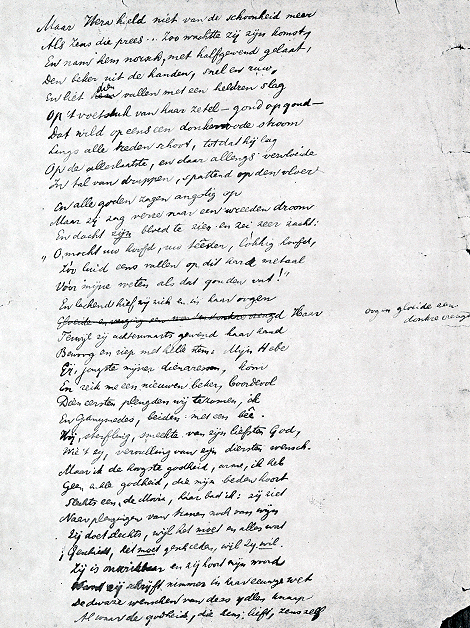 Maar Hera hield niet van de schoonheid meer
Als Zeus die prees... Zoo wachtte zij zijn komst,
En nam hem norsch, met half gewend gelaat,
Den beker uit de handen, snel en ruw,
En liet dien vallen met een helderen slag
Op 't voetstuk van haar zetel - goud op goud -
Dat wild opeens een donkerroode stroom
Langs alle treden schoot, totdat hij lag
Op de allerlaatste, en daar allengs
In tal van droppen, spattend op den vloer
En alle goden zagen angstig op
Maar zij zag verre naar een wreeden droom
En dacht zijn bloed te zien en zei zeer zacht:
"O, mocht uw hoofd, uw lokkig hoofd,
Zóó luid eens vallen op dit hard metaal
Vóór mijne voeten als dat gouden vat!"
En lachend hief zij zich en in haar oogen
Haar
Terwijl zij achterwaarts gewend haar hand
Bewoog en riep met helle stem: Mijn Hebe
Gij, jongste mijner dienaressen, kom
En reik me een nieuwen beker, boordevol
Den eersten plengden wij te zamen, ik
En Ganymedes, beiden met een bêe
Hij, sterfling, smeekte van zijn liefsten God,
vervulling van zijn diersten wensch.
Maar ik de hoogste godheid, arme, ik heb
Geen godheid, die mijn beden hoort
Slechts een, de Moira, hier bad ik: zij ziet
Naar plengingen van tranen noch van wijn
Zij doet slechts, wijl het moet en alles wat
Geschiedt, het moet geschieden, wijl zij wil.
Zij is onwrikbaar en zij hoort mijn mond
zij schrijft nimmer in haar eeuwge wet
De dwaze wenschen van dezen ydlen knaap
Al waar de godheid, die hem lieft, Zeus zelf
oogen gloeide een
donkre vreugd